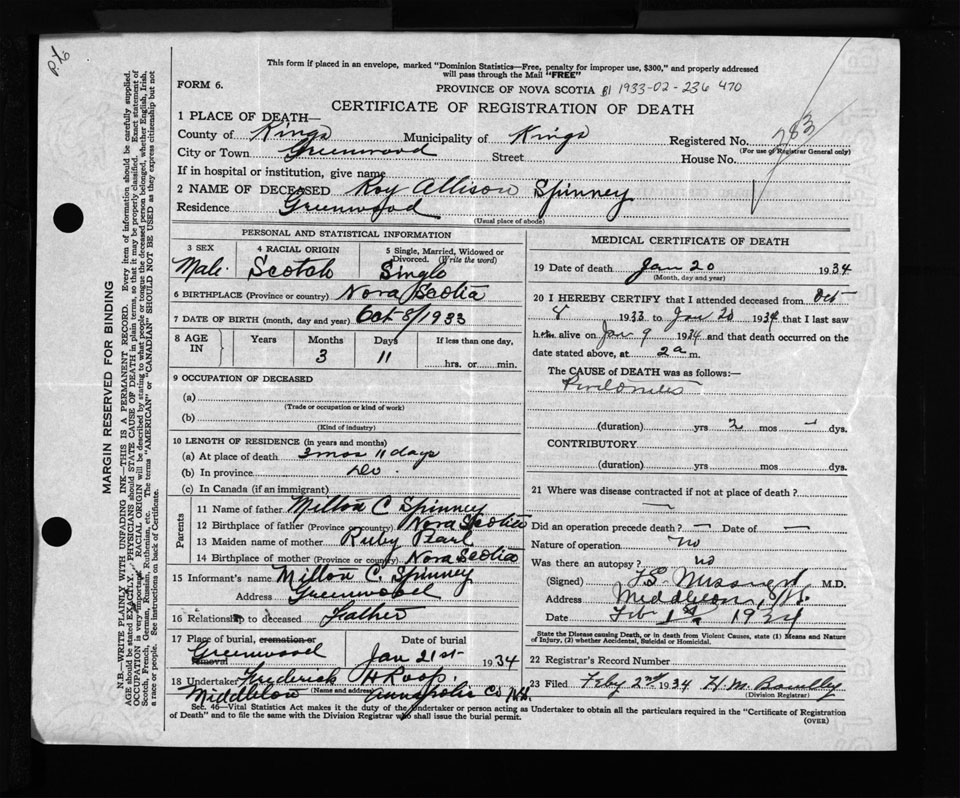 P.76
This form if placed in an envelope, marked "Dominion Statistics—Free, penalty for improper use, $300," and properly addressed
will pass through the Mail "FREE"
FORM 6.
PROVINCE OF NOVA SCOTIA 1933-02-236 470
CERTIFICATE OF REGISTRATION OF DEATH
1 PLACE OF DEATH—
County of Kings Municipality of Kings Registered No. 283
(For use of Registrar General only)
City or Town Greenwood Street House No.
If in hospital or institution, give name
2 NAME OF DECEASED Roy Allison Spinney
Residence Greenwood
(Usual place of abode)
PERSONAL AND STATISTICAL INFORMATION
3 SEX 4 RACIAL ORIGIN 5 Single, Married, Widowed or
Divorced. (Write the word)
Male. Scotch Single
6 BIRTHPLACE (Province or country) Nova Scotia
7 DATE OF BIRTH (month, day and year) Oct 8/1933
8 AGE IN Years Months Days If less than one day,
3 11 hrs. or min.
9 OCCUPATION OF DECEASED
(a)
(Trade or occupation or kind of work)
(b)
(Kind of industry)
10 LENGTH OF RESIDENCE (in years and months)
(a) At place of death 3 mos 11 days
(b) In province Do.
(c) In Canada (if an immigrant)
Parents
11 Name of father Milton C. Spinney
12 Birthplace of father (Province or country) Nova Scotia
13 Maiden name of mother Ruby Pearl
14 Birthplace of mother (Province or country) Nova Scotia
15 Informant's name Milton C. Spinney
Address Greenwood
16 Relationship to deceased Father
17 Place of burial, cremation or removal Date of burial
Greenwood Jan 21st 1934
18 Undertaker Frederick H Roop.
(Name and address)
Middleton Annapolis Co N.S.
MEDICAL CERTIFICATE OF DEATH
19 Date of death Jan 20 1934
(Month, day and year)
20 I HEREBY CERTIFY that I attended deceased from Oct
8 1933 to Jan 20 1934 that I last saw
him alive on Jan 9 1934 and that death occurred on the
date stated above, at 2 a m.
The CAUSE of DEATH was as follows:—
(duration) yrs 2 mos — dys.
CONTRIBUTORY
(duration) yrs mos dys.
21 Where was disease contracted if not at place of death?
—
Did an operation precede death? — Date of —
Nature of operation no
Was there an autopsy? no
(Signed) M.D.
Address Middleton, N.S.
Date Feb 1st 1934
State the Disease causing Death, or in death from Violent Causes, state (1) Means and Nature
of Injury, (2) whether Accidental, Suicidal or Homicidal.
22 Registrar's Record Number
23 Filed Feby 2nd 1934 H. M.
(Division Registrar)
Sec. 46—Vital Statistics Act makes it the duty of the undertaker or person acting as Undertaker to obtain all the particulars required in the "Certificate of Registration
of Death" and to file the same with the Division Registrar who shall issue the burial permit.
(OVER)
MARGIN RESERVED FOR BINDING
N.B.—WRITE PLAINLY WITH UNFADING INK—THIS IS A PERMANENT RECORD. Every item of information should be carefully supplied.
AGE should be stated EXACTLY. PHYSICIANS should STATE CAUSE OF DEATH in plain terms, so that it may be properly classified. Exact statement of
OCCUPATION is very important. RACIAL ORIGIN will be described by stating to what people or tongue the deceased person belonged, whether English, Irish,
Scotch, French, German, Russian, Ruthenian, etc. The terms "AMERICAN" or "CANADIAN" SHOULD NOT BE USED as they express citizenship but not
a race or people. See instructions on back of Certificate.